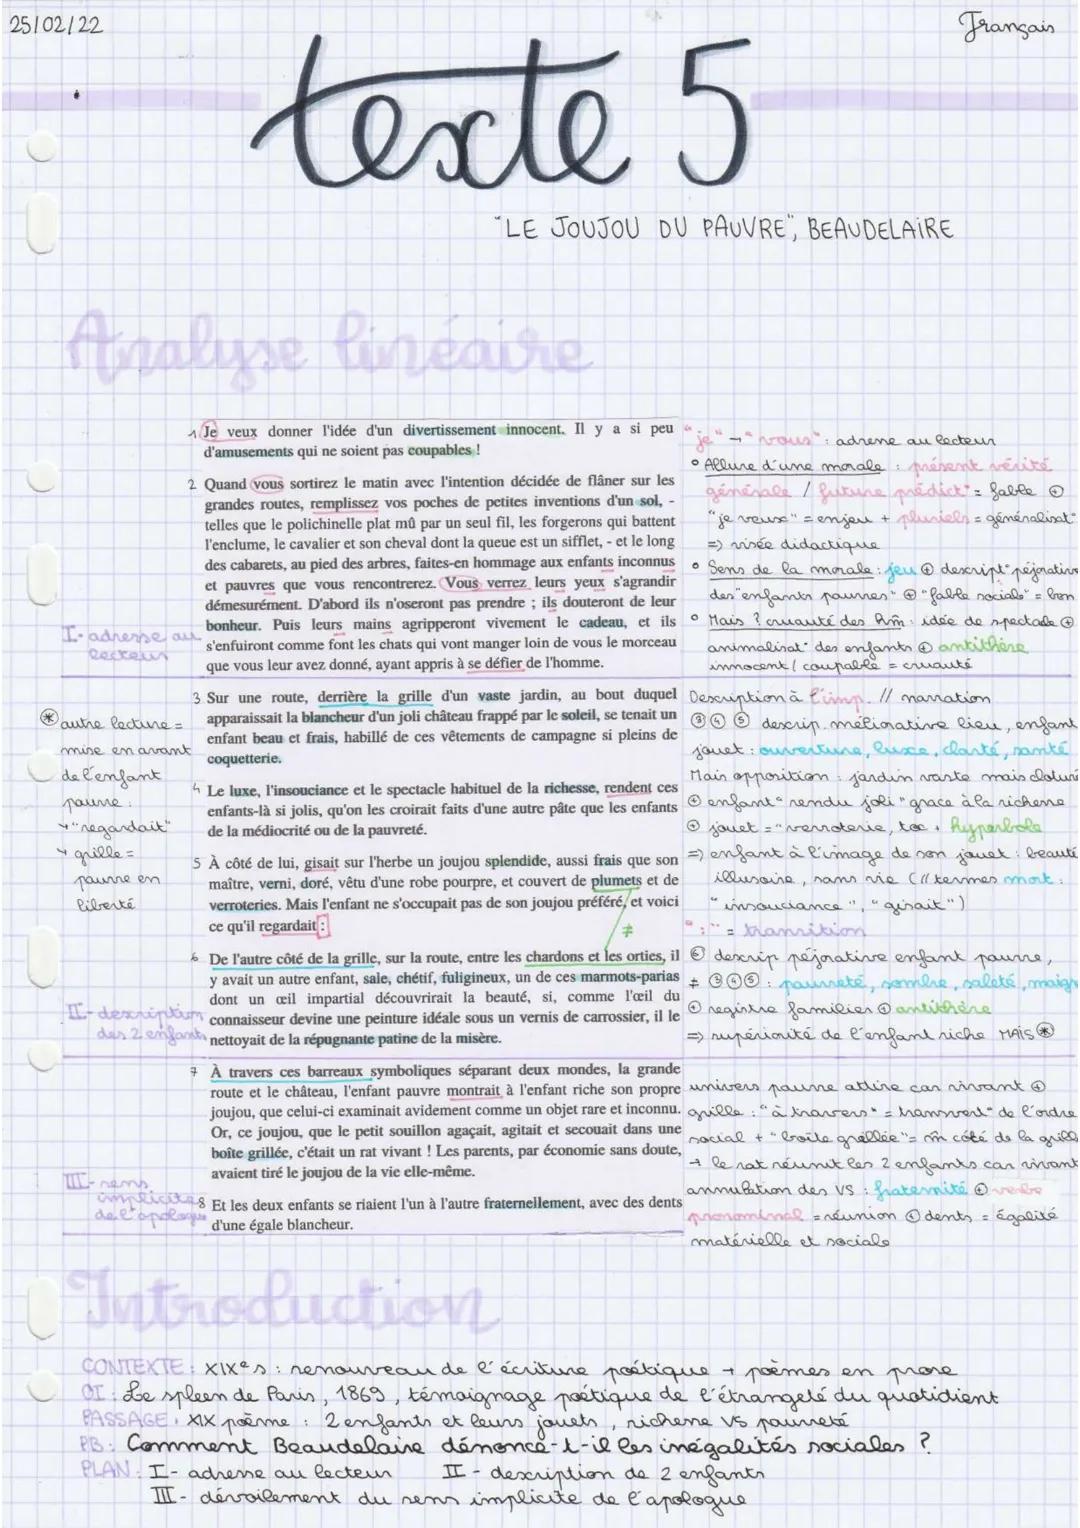 25/02/22
Français
texte 5
"LE JOUJOU DU PAUVRE", BEAUDELAIRE
Analyse linéaire
1 Je veux donner l'idée d'un divertissement innocent. Il y a si peu
d'amusements qui ne soient pas coupables !
2 Quand vous sortirez le matin avec l'intention décidée de flâner sur les
grandes routes, remplissez vos poches de petites inventions d'un sol, -
telles que le polichinelle plat mû par un seul fil, les forgerons qui battent
l'enclume, le cavalier et son cheval dont la queue est un sifflet, - et le long
des cabarets, au pied des arbres, faites-en hommage aux enfants inconnus
et pauvres que vous rencontrerez. Vous verrez leurs yeux s'agrandir
démesurément. D'abord ils n'oseront pas prendre ; ils douteront de leur
bonheur. Puis leurs mains agripperont vivement le cadeau, et ils
s'enfuiront comme font les chats qui vont manger loin de vous le morceau
que vous leur avez donné, ayant appris à se défier de l'homme.
I- adresse au
lecteur
"je" → "vous" : adresse au lecteur
° Allure d'une morale : présent vérité
générale / future prédict° = fable ⊕
"je veux" = enjeu + pluriels = généralisat°
=> visée didactique
° Sens de la morale : jeu ⊕ descript° péjorative
des "enfants pauvres" ⊕ "fable sociale" = bon
° Mais ? cruauté des hm : idée de spectacle ⊕
animalisat° des enfants ⊕ antithèse
innocent / coupable = cruauté
3 Sur une route, derrière la grille d'un vaste jardin, au bout duquel
apparaissait la blancheur d'un joli château frappé par le soleil, se tenait un
enfant beau et frais, habillé de ces vêtements de campagne si pleins de
coquetterie.
4 Le luxe, l'insouciance et le spectacle habituel de la richesse, rendent ces
enfants-là si jolis, qu'on les croirait faits d'une autre pâte que les enfants
de la médiocrité ou de la pauvreté.
5 À côté de lui, gisait sur l'herbe un joujou splendide, aussi frais que son
maître, verni, doré, vêtu d'une robe pourpre, et couvert de plumets et de
verroteries. Mais l'enfant ne s'occupait pas de son joujou préféré, et voici
ce qu'il regardait :
≠
6 De l'autre côté de la grille, sur la route, entre les chardons et les orties, il
y avait un autre enfant, sale, chétif, fuligineux, un de ces marmots-parias
dont un œil impartial découvrirait la beauté, si, comme l'œil du
connaisseur devine une peinture idéale sous un vernis de carrossier, il le
nettoyait de la répugnante patine de la misère.
* autre lecture =
mise en avant
de l'enfant
pauvre :
↳ "regardait"
↳ grille =
pauvre en
liberté
II- description
des 2 enfants
Description à l'imp. // narration
③④⑤ descrip. méliorative lieu, enfant
jouet : ouverture, luxe, clarté, santé
Mais opposition : jardin vaste mais cloturé
⊕ enfant "rendu joli" grace à la richesse
⊕ jouet = "verroterie, toc + hyperbole
=> enfant à l'image de son jouet : beauté
illusoire, sans vie (// termes mort :
"insouciance", "gisait")
":" = transition
⑥ descrip péjorative enfant pauvre,
≠ ③④⑤ : pauvreté, sombre, saleté, maigr
⊕ registre familier ⊕ antithèse
=> supériorité de l'enfant riche MAIS *
7 À travers ces barreaux symboliques séparant deux mondes, la grande
route et le château, l'enfant pauvre montrait à l'enfant riche son propre
joujou, que celui-ci examinait avidement comme un objet rare et inconnu.
Or, ce joujou, que le petit souillon agaçait, agitait et secouait dans une
boîte grillée, c'était un rat vivant ! Les parents, par économie sans doute,
avaient tiré le joujou de la vie elle-même.
8 Et les deux enfants se riaient l'un à l'autre fraternellement, avec des dents
d'une égale blancheur.
III- sens
implicite
de l'apologue
univers pauvre attire car vivant ⊕
grille : "à travers" = transvers° de l'ordre
social + "boîte grillée" = m côté de la grille
→ le rat réunit les 2 enfants car vivant
annulation des VS : fraternité ⊕ verbe
pronominal = réunion ⊕ dents = égalité
matérielle et sociale
Introduction
CONTEXTE : XIXe s : renouveau de l'écriture poétique → poèmes en prose
OI : Le spleen de Paris, 1869, témoignage poétique de l'étrangeté du quotidient
PASSAGE : XIX poème : 2 enfants et leurs jouets, richesse VS pauvreté
PB : Comment Beaudelaire dénonce-t-il les inégalités sociales ?
PLAN : I- adresse au lecteur II- description de 2 enfants
III- dévoilement du sens implicite de l'apologue